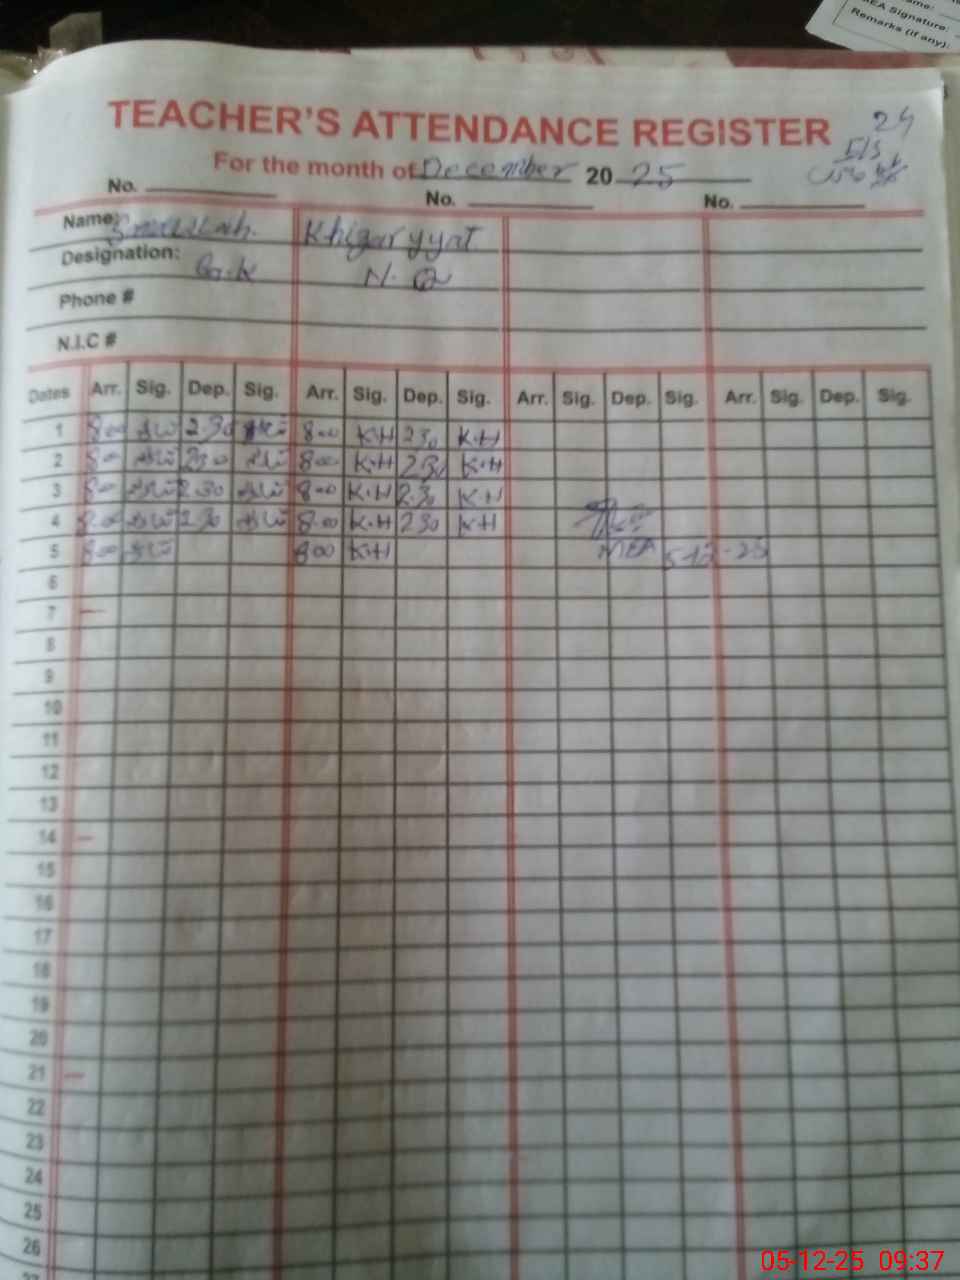 Name:
EA Signature:
Remarks (if any):
TEACHER'S ATTENDANCE REGISTER
24
For the month of December 20 25
No. No. No.
Name: Khizar yyat
Designation: N. Q
Phone #
N.I.C #
Dates Arr. Sig. Dep. Sig. Arr. Sig. Dep. Sig. Arr. Sig. Dep. Sig. Arr. Sig. Dep. Sig.
1 8 00 2 30 8 00 K.H 2 30 K.H
2 8 00 2 30 8 00 K.H 2 30 K.H
3 8 00 2.30 8 00 K.H 2.30 K.H
4 8.00 2.30 8.00 K.H 2 30 K.H
5 8 00 800 K.H MEA 5-12-25
6
7 –
8
9
10
11
12
13
14 –
15
16
17
18
19
20
21 –
22
23
24
25
26
27
05-12-25 09:37